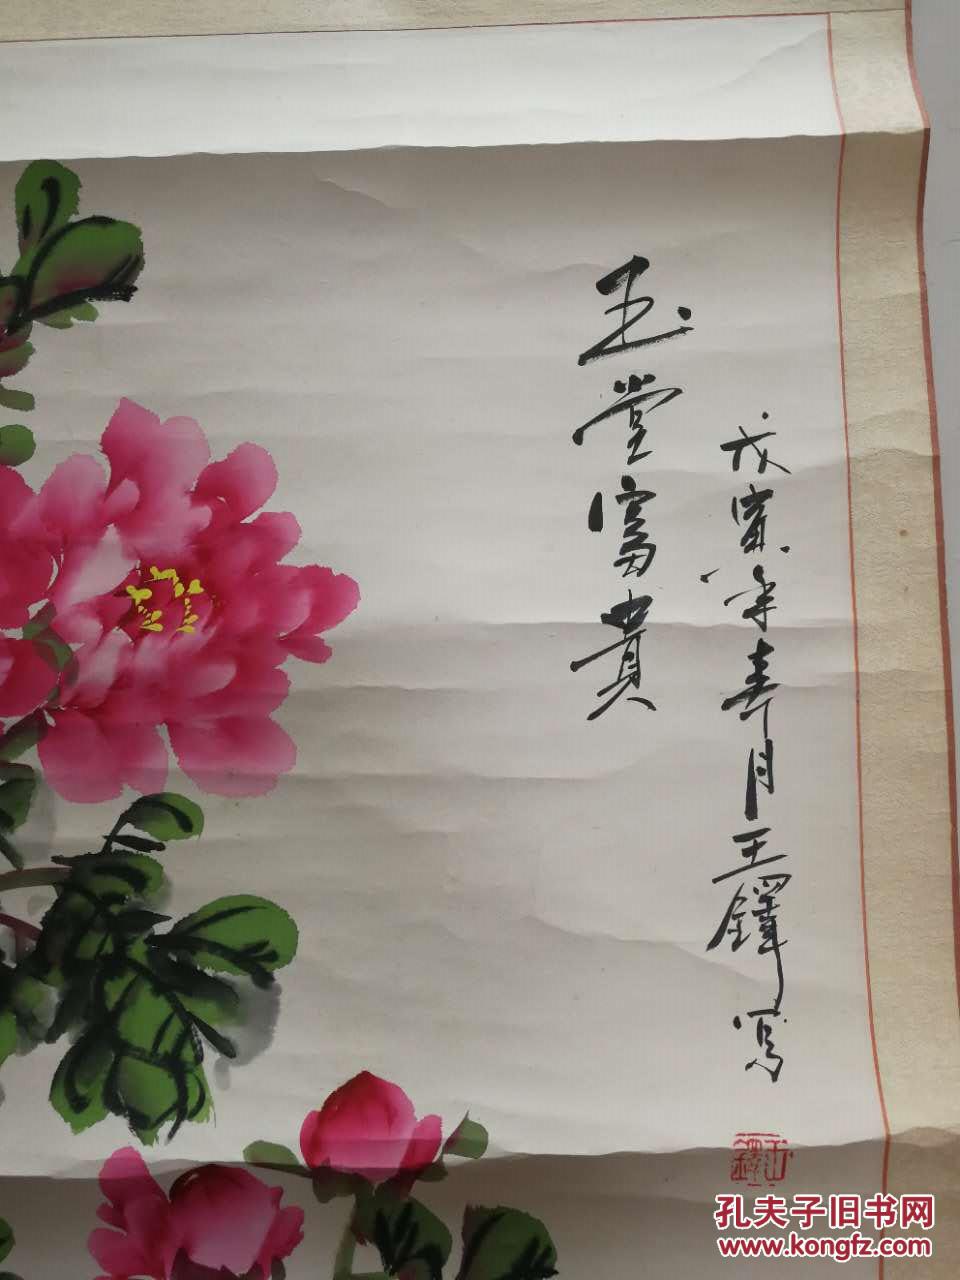 玉堂富貴
戊寅年春月王鐸寫
王鐸
孔夫子旧书网
www.kongfz.com